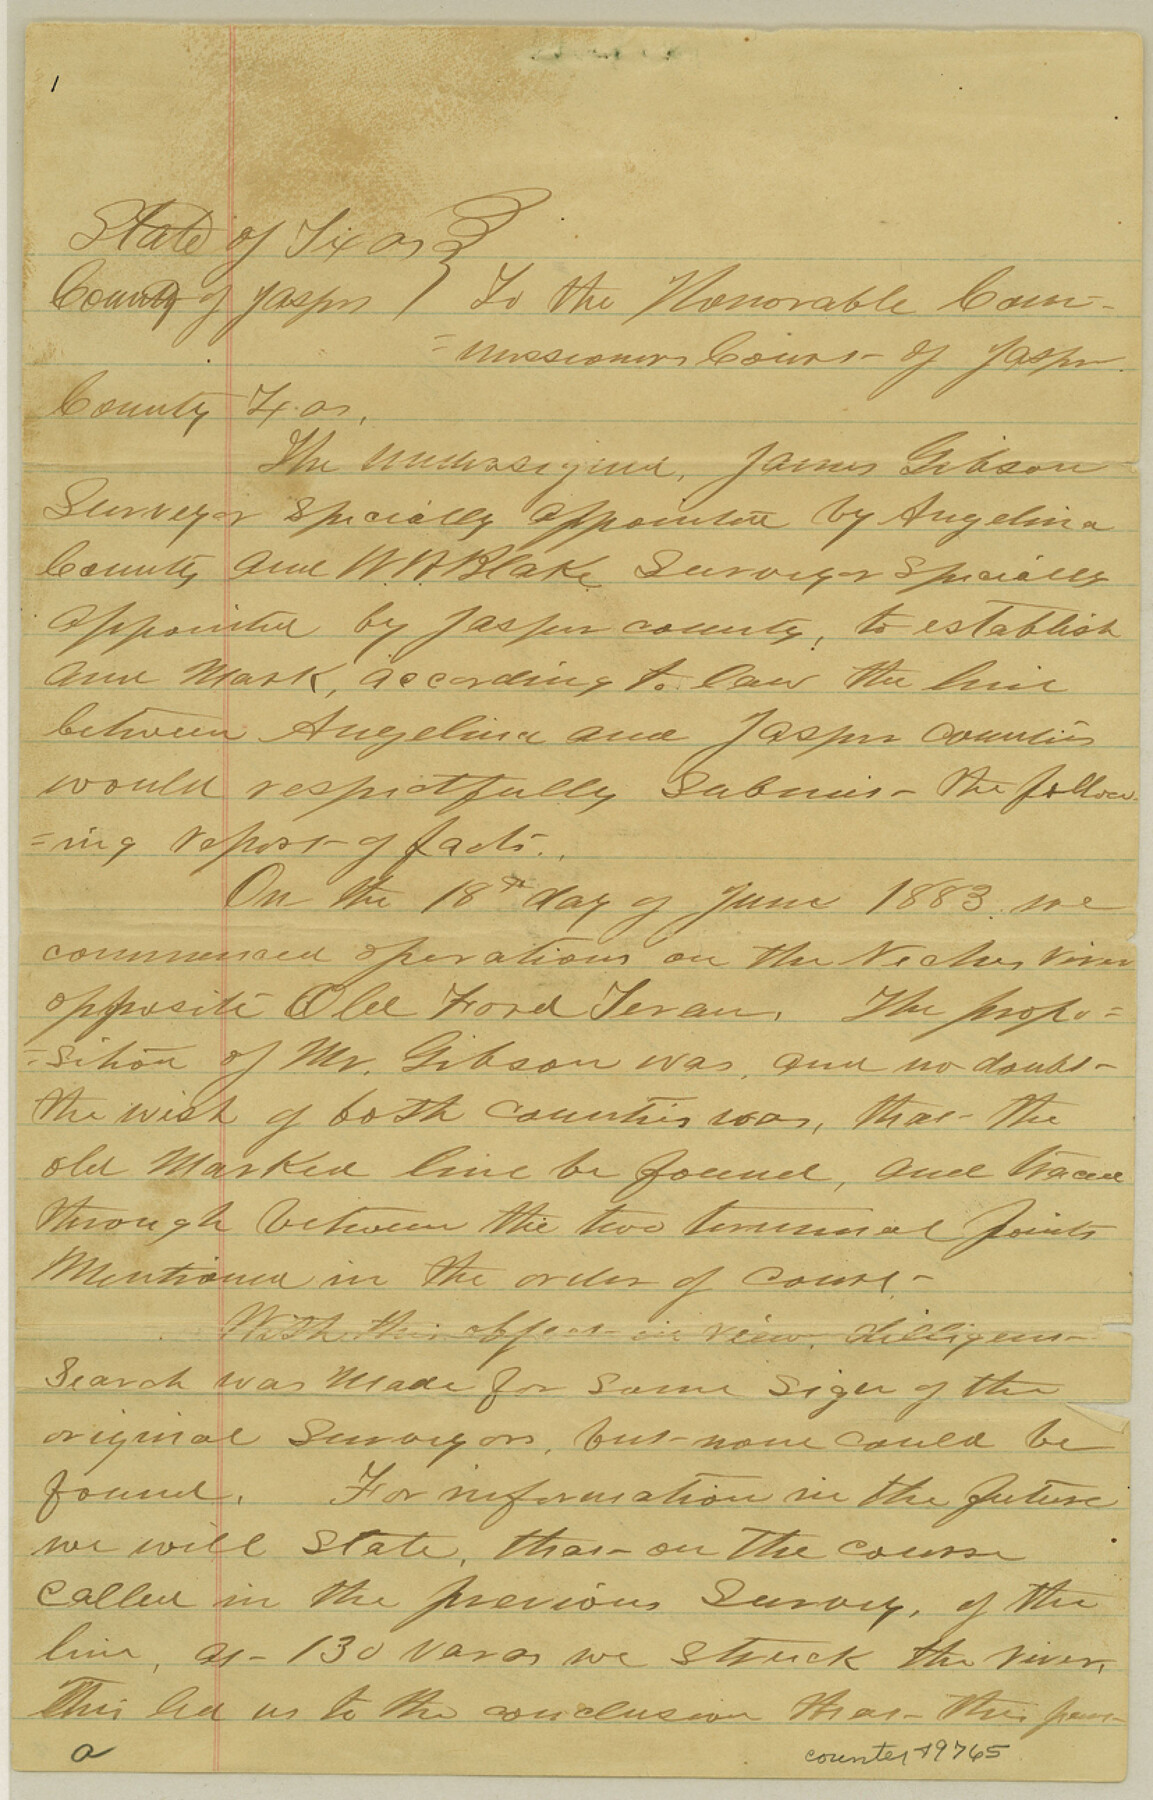 1
State of Texas }
County of Jasper } To the Honorable Com-
=missioners Court of Jasper
County Texas,
The undersigned, James Gibson
Surveyor specially appointed by Angelina
County and W. A. Blake Surveyor specially
appointed by Jasper county, to establish
and mark, according to law the line
between Angelina and Jasper counties
would respectfully submit the follow-
=ing report of facts.
On the 18th day of June 1883 we
commenced operations on the Neches river
opposite Old Ford Teran. The propo=
=sition of Mr. Gibson was, and no doubt
the wish of both counties was, that the
old marked line be found, and traced
through between the two terminal points
mentioned in the order of court
With this object in view, dilligent
search was made for some sign of the
original Surveyors, but none could be
found. For information in the future
we will state, that on the course
called in the previous Survey, of the
line, at 130 varas we struck the river.
This led us to the conclusion that this
a
counter 49765